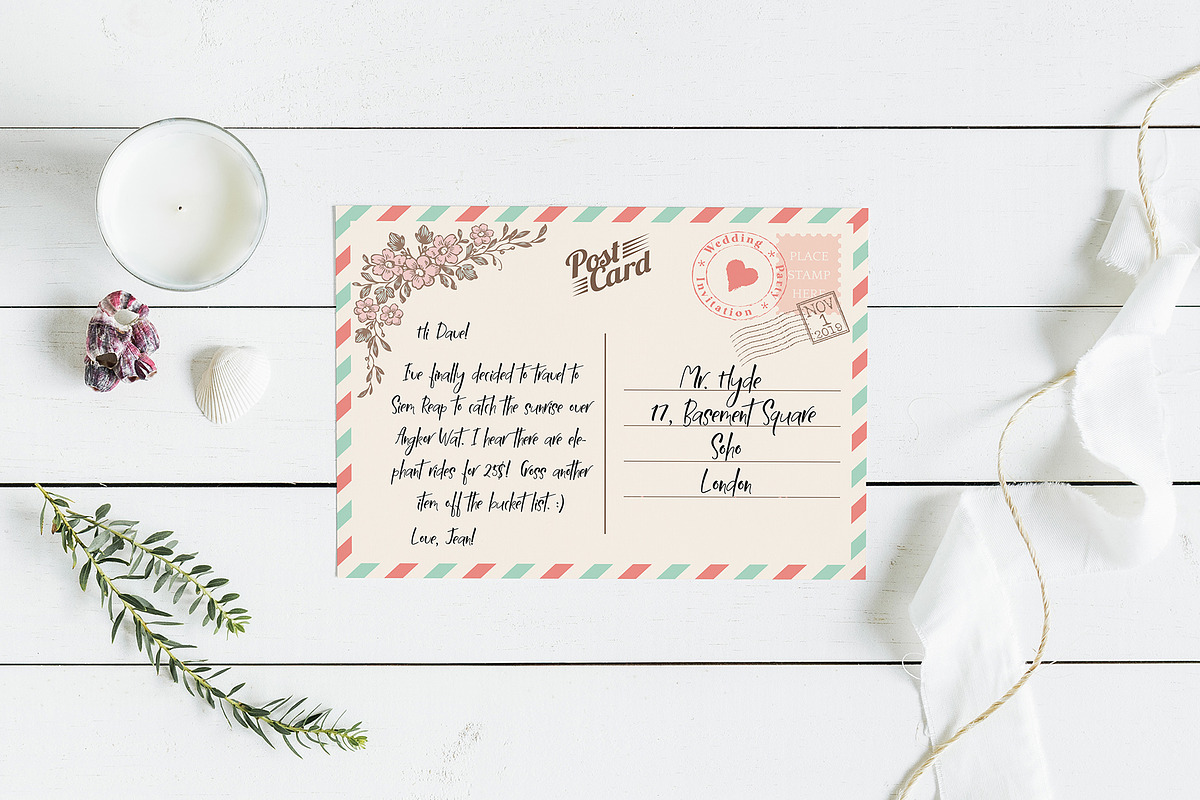 Post
Card
Wedding Party
Invitation
PLACE
STAMP
HERE
NOV
2019
Hi Dave!
I've finally decided to travel to
Siem Reap to catch the sunrise over
Angkor Wat. I hear there are ele-
phant rides for 25$! Cross another
item off the bucket list. :)
Love, Jean!
Mr. Hyde
17, Basement Square
Soho
London